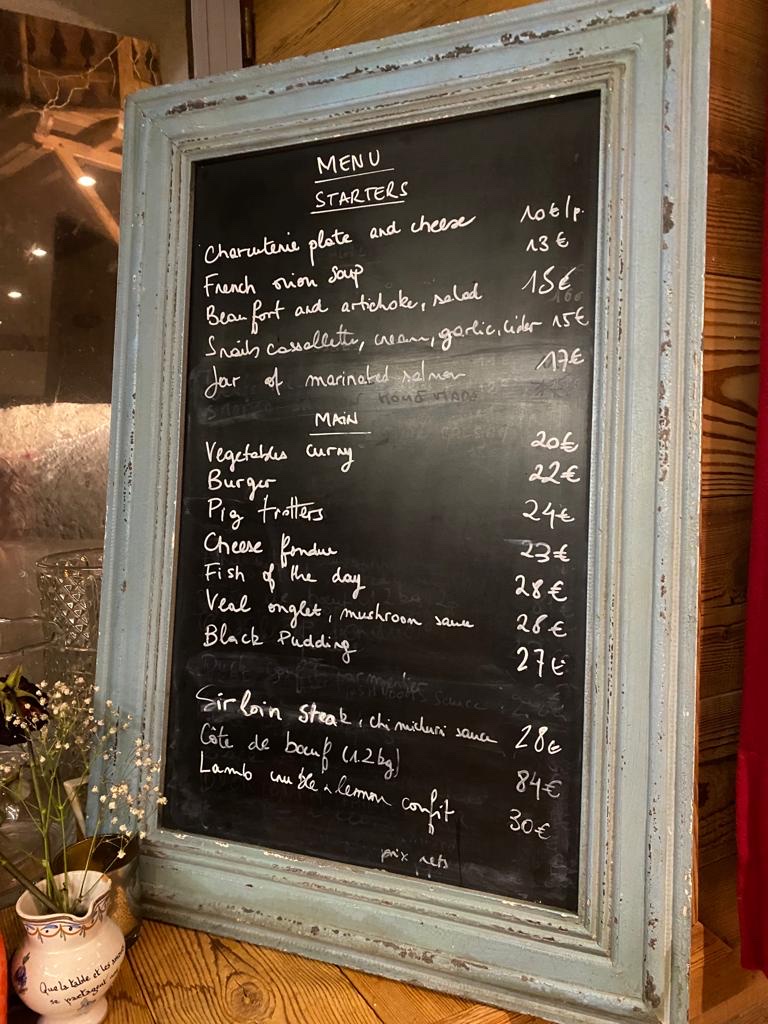 MENU
STARTERS
Charcuterie plate and cheese 10€/p.
French onion soup 13€
Beaufort and artichoke, salad 15€
Snails cassollette, cream, garlic, cider 15€
Jar of marinated salmon 17€
MAIN
Vegetables curry 20€
Burger 22€
Pig trotters 24€
Cheese fondue 23€
Fish of the day 28€
Veal onglet, mushroom sauce 28€
Black Pudding 27€
Sirloin steak, chimichuri sauce 28€
Côte de bœuf (1.2kg) 84€
Lamb lemon confit 30€
prix nets
Que la table et les
se partagent